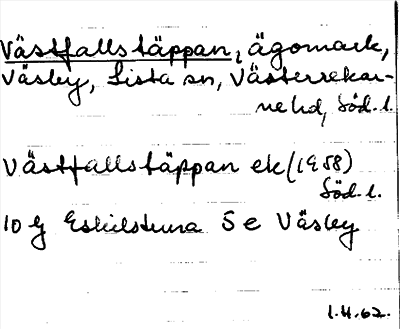 Västfallstäppan, ägomark,
Väsby, Lista sn, Västerrekar-
ne hd, Söd. l.
Västfallstäppan ek (1958)
Söd. l.
10 G Eskilstuna 5 e Väsby
1.4.62.